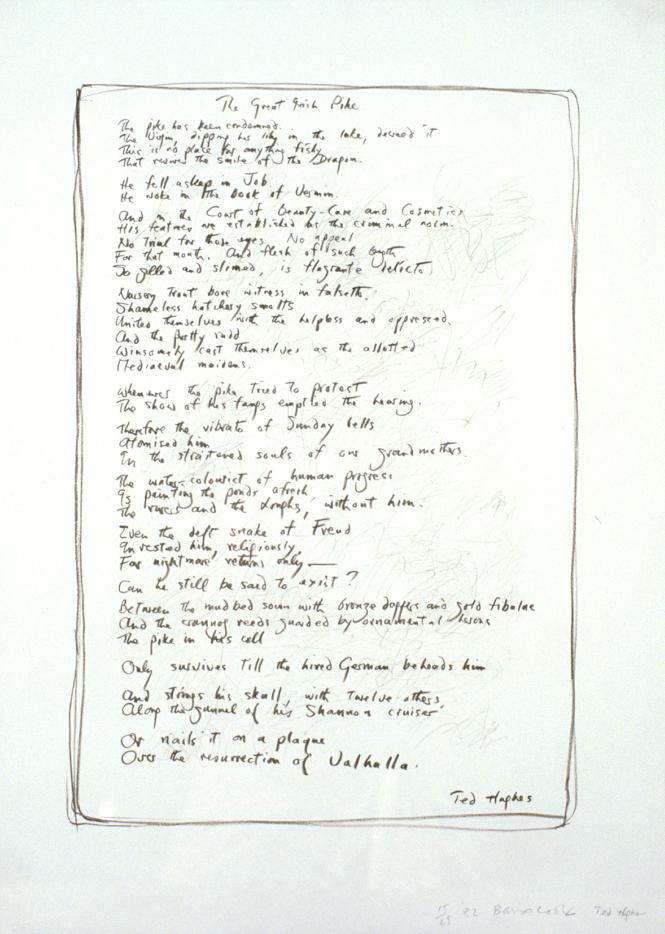 The Great Irish Pike
The pike has been condemned.
The Virgin, dipping her lily in the lake, decreed it
This is no place for anything fishy
That revives the smile of the Dragon.
He fell asleep in Job.
He woke in the Book of Vermin.
And in the Court of Beauty-Care and Cosmetics
His features are established as the criminal norm.
No Trial for those eyes. No appeal
For that mouth. And flesh of such length
So gilled and slimed, is flagrante delicto,
Nursery trout bore witness in falsetto,
Shameless hatchery smolts
United themselves with the helpless and oppressed.
And the portly rudd
Winsomely cast themselves as the allotted
Mediaeval maidens.
Whenever the pike tried to protest
The show of his fangs emptied the hearing.
Therefore the vibrato of Sunday bells
Atomised him
In the straitened souls of our grandmothers.
The water-colourist of human progress
Is painting the ponds afresh
The rivers and the loughs, without him.
Even the deft snake of Freud
Invested him, religiously,
For nightmare returns only —
Can he still be said to exist?
Between the mudbed sown with bronze daggers and gold fibulae
And the crannog reeds guarded by ornamental
The pike in his cell
Only survives till the hired German beheads him
And strings his skull, with twelve others,
Along the gunnel of his Shannon cruiser
Or nails it on a plaque
Over the resurrection of Valhalla.
Ted Hughes
15/25 82 Ted Hughes